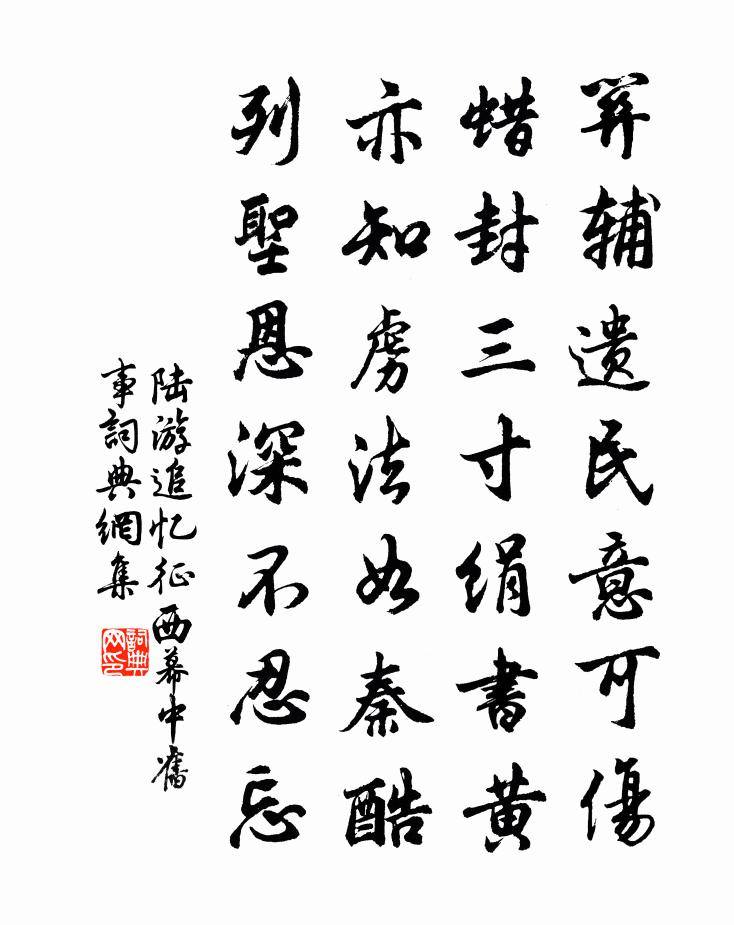 关辅遗民意可傷
蜡封三寸绢書黄
亦知虏法如秦酷
列聖恩深不忍忘
陆游追忆征西幕中舊
事詞典網集
詞典
网印